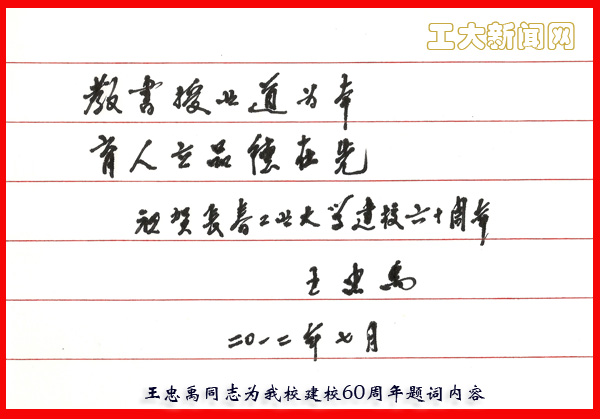 工大新闻网
教書授业道为本
育人立品德在先
祝贺长春工业大学建校六十周年
王忠禹
二〇一二年七月
王忠禹同志为我校建校60周年题词内容